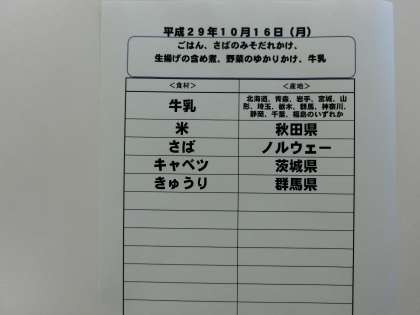 平成29年10月16日（月）
ごはん、さばのみそだれかけ、
生揚げの含め煮、野菜のゆかりかけ、牛乳
＜食材＞ ＜産地＞
牛乳 北海道、青森、岩手、宮城、山
形、埼玉、栃木、群馬、神奈川、
静岡、千葉、福島のいずれか
米 秋田県
さば ノルウェー
キャベツ 茨城県
きゅうり 群馬県